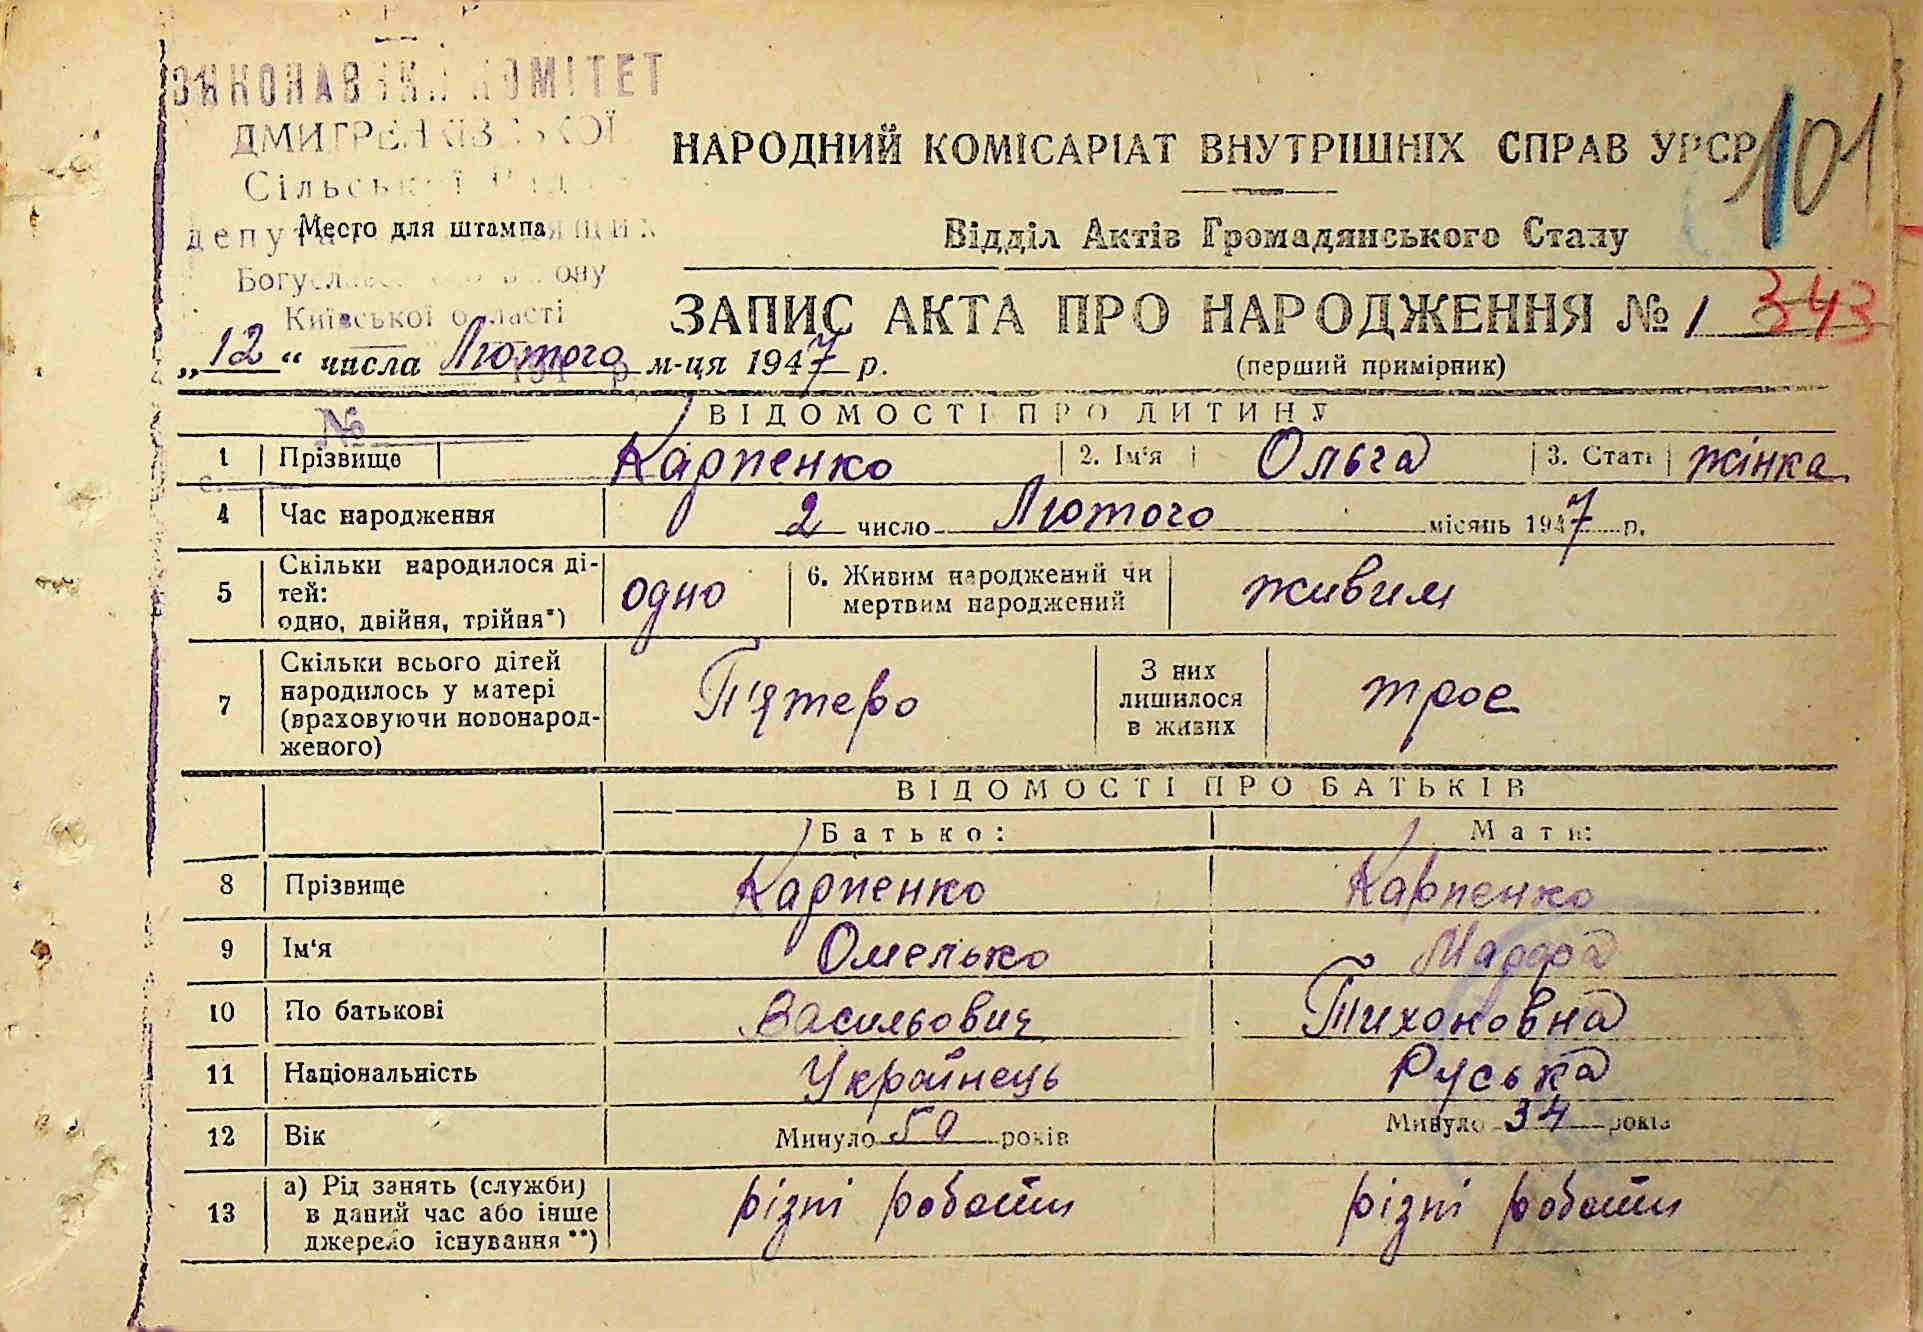 ВИКОНАВЧИЙ КОМІТЕТ
ДМИТРЕНКІВСЬКОЇ
Сільської Ради
депутатів трудящих
Богуславського району
Київської області
Место для штампа
НАРОДНИЙ КОМІСАРІАТ ВНУТРІШНІХ СПРАВ УРСР
101
Відділ Актів Громадянського Стану
ЗАПИС АКТА ПРО НАРОДЖЕННЯ № 1 343
(перший примірник)
„12“ числа Лютого м-ця 1947 р.
№
ВІДОМОСТІ ПРО ДИТИНУ
1 Прізвище Карпенко 2. Ім'я Ольга 3. Стать жінка
4 Час народження 2 число Лютого місяць 1947 р.
5 Скільки народилося ді-
тей:
одно, двійня, трійня*) одно 6. Живим народжений чи
мертвим народжений живим
7 Скільки всього дітей
народилось у матері
(враховуючи новонарод-
женого) П'ятеро З них
лишилося
в живих троє
ВІДОМОСТІ ПРО БАТЬКІВ
Батько: Мати:
8 Прізвище Карпенко Карпенко
9 Ім'я Омелько Марфа
10 По батькові Васильович Тихоновна
11 Національність Українець Руська
12 Вік Минуло 50 років Минуло 34 років
13 а) Рід занять (служби)
в даний час або інше
джерело існування**) різні роботи різні роботи